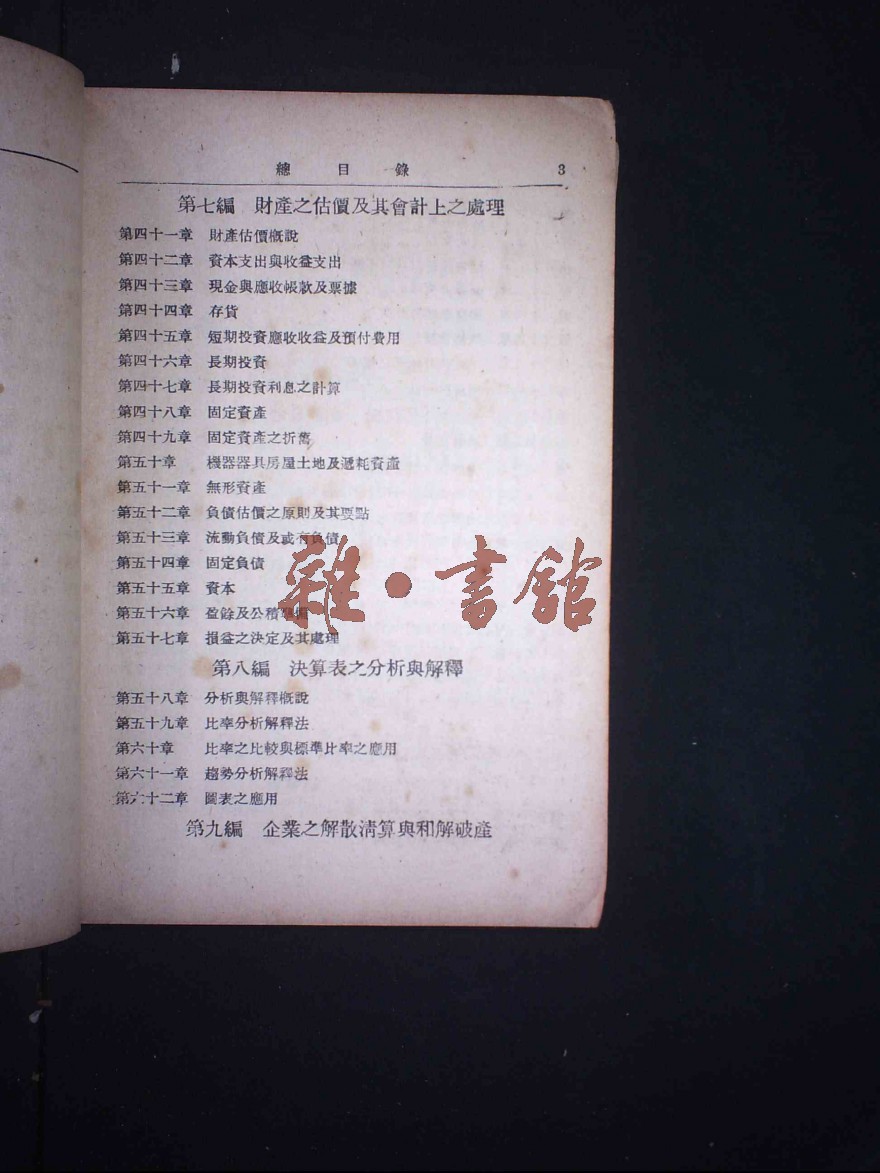 總目錄 3
第七編 財產之估價及其會計上之處理
第四十一章 財產估價概說
第四十二章 資本支出與收益支出
第四十三章 現金與應收帳款及票據
第四十四章 存貨
第四十五章 短期投資應收收益及預付費用
第四十六章 長期投資
第四十七章 長期投資利息之計算
第四十八章 固定資產
第四十九章 固定資產之折舊
第五十章 機器器具房屋土地及遞耗資產
第五十一章 無形資產
第五十二章 負債估價之原則及其要點
第五十三章 流動負債及或有負債
第五十四章 固定負債
第五十五章 資本
第五十六章 盈餘及公積
第五十七章 損益之決定及其處理
雜·書館
第八編 決算表之分析與解釋
第五十八章 分析與解釋概說
第五十九章 比率分析解釋法
第六十章 比率之比較與標準比率之應用
第六十一章 趨勢分析解釋法
第六十二章 圖表之應用
第九編 企業之解散清算與和解破產